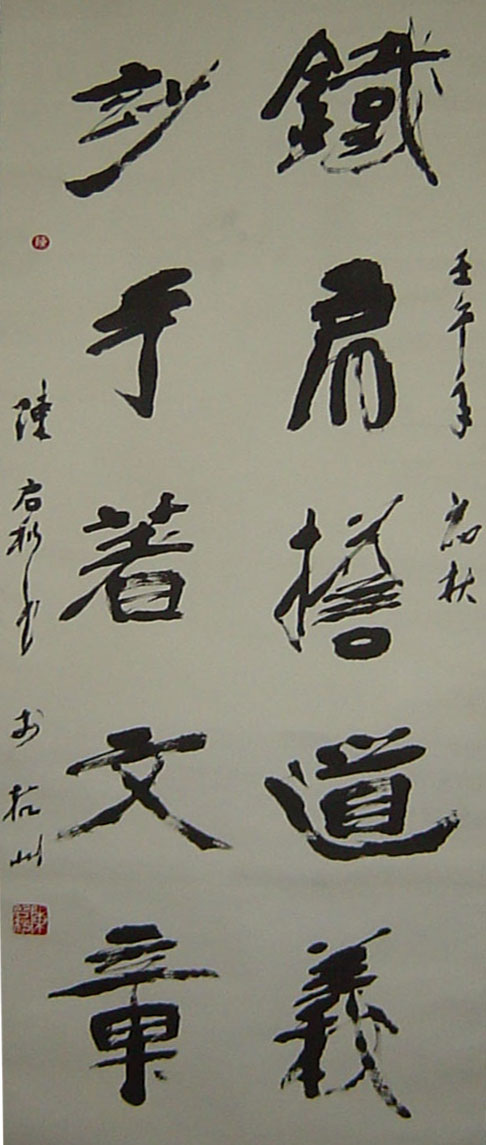 壬午年初秋
鐵肩擔道義
妙手著文章
陳启秋書於杭州